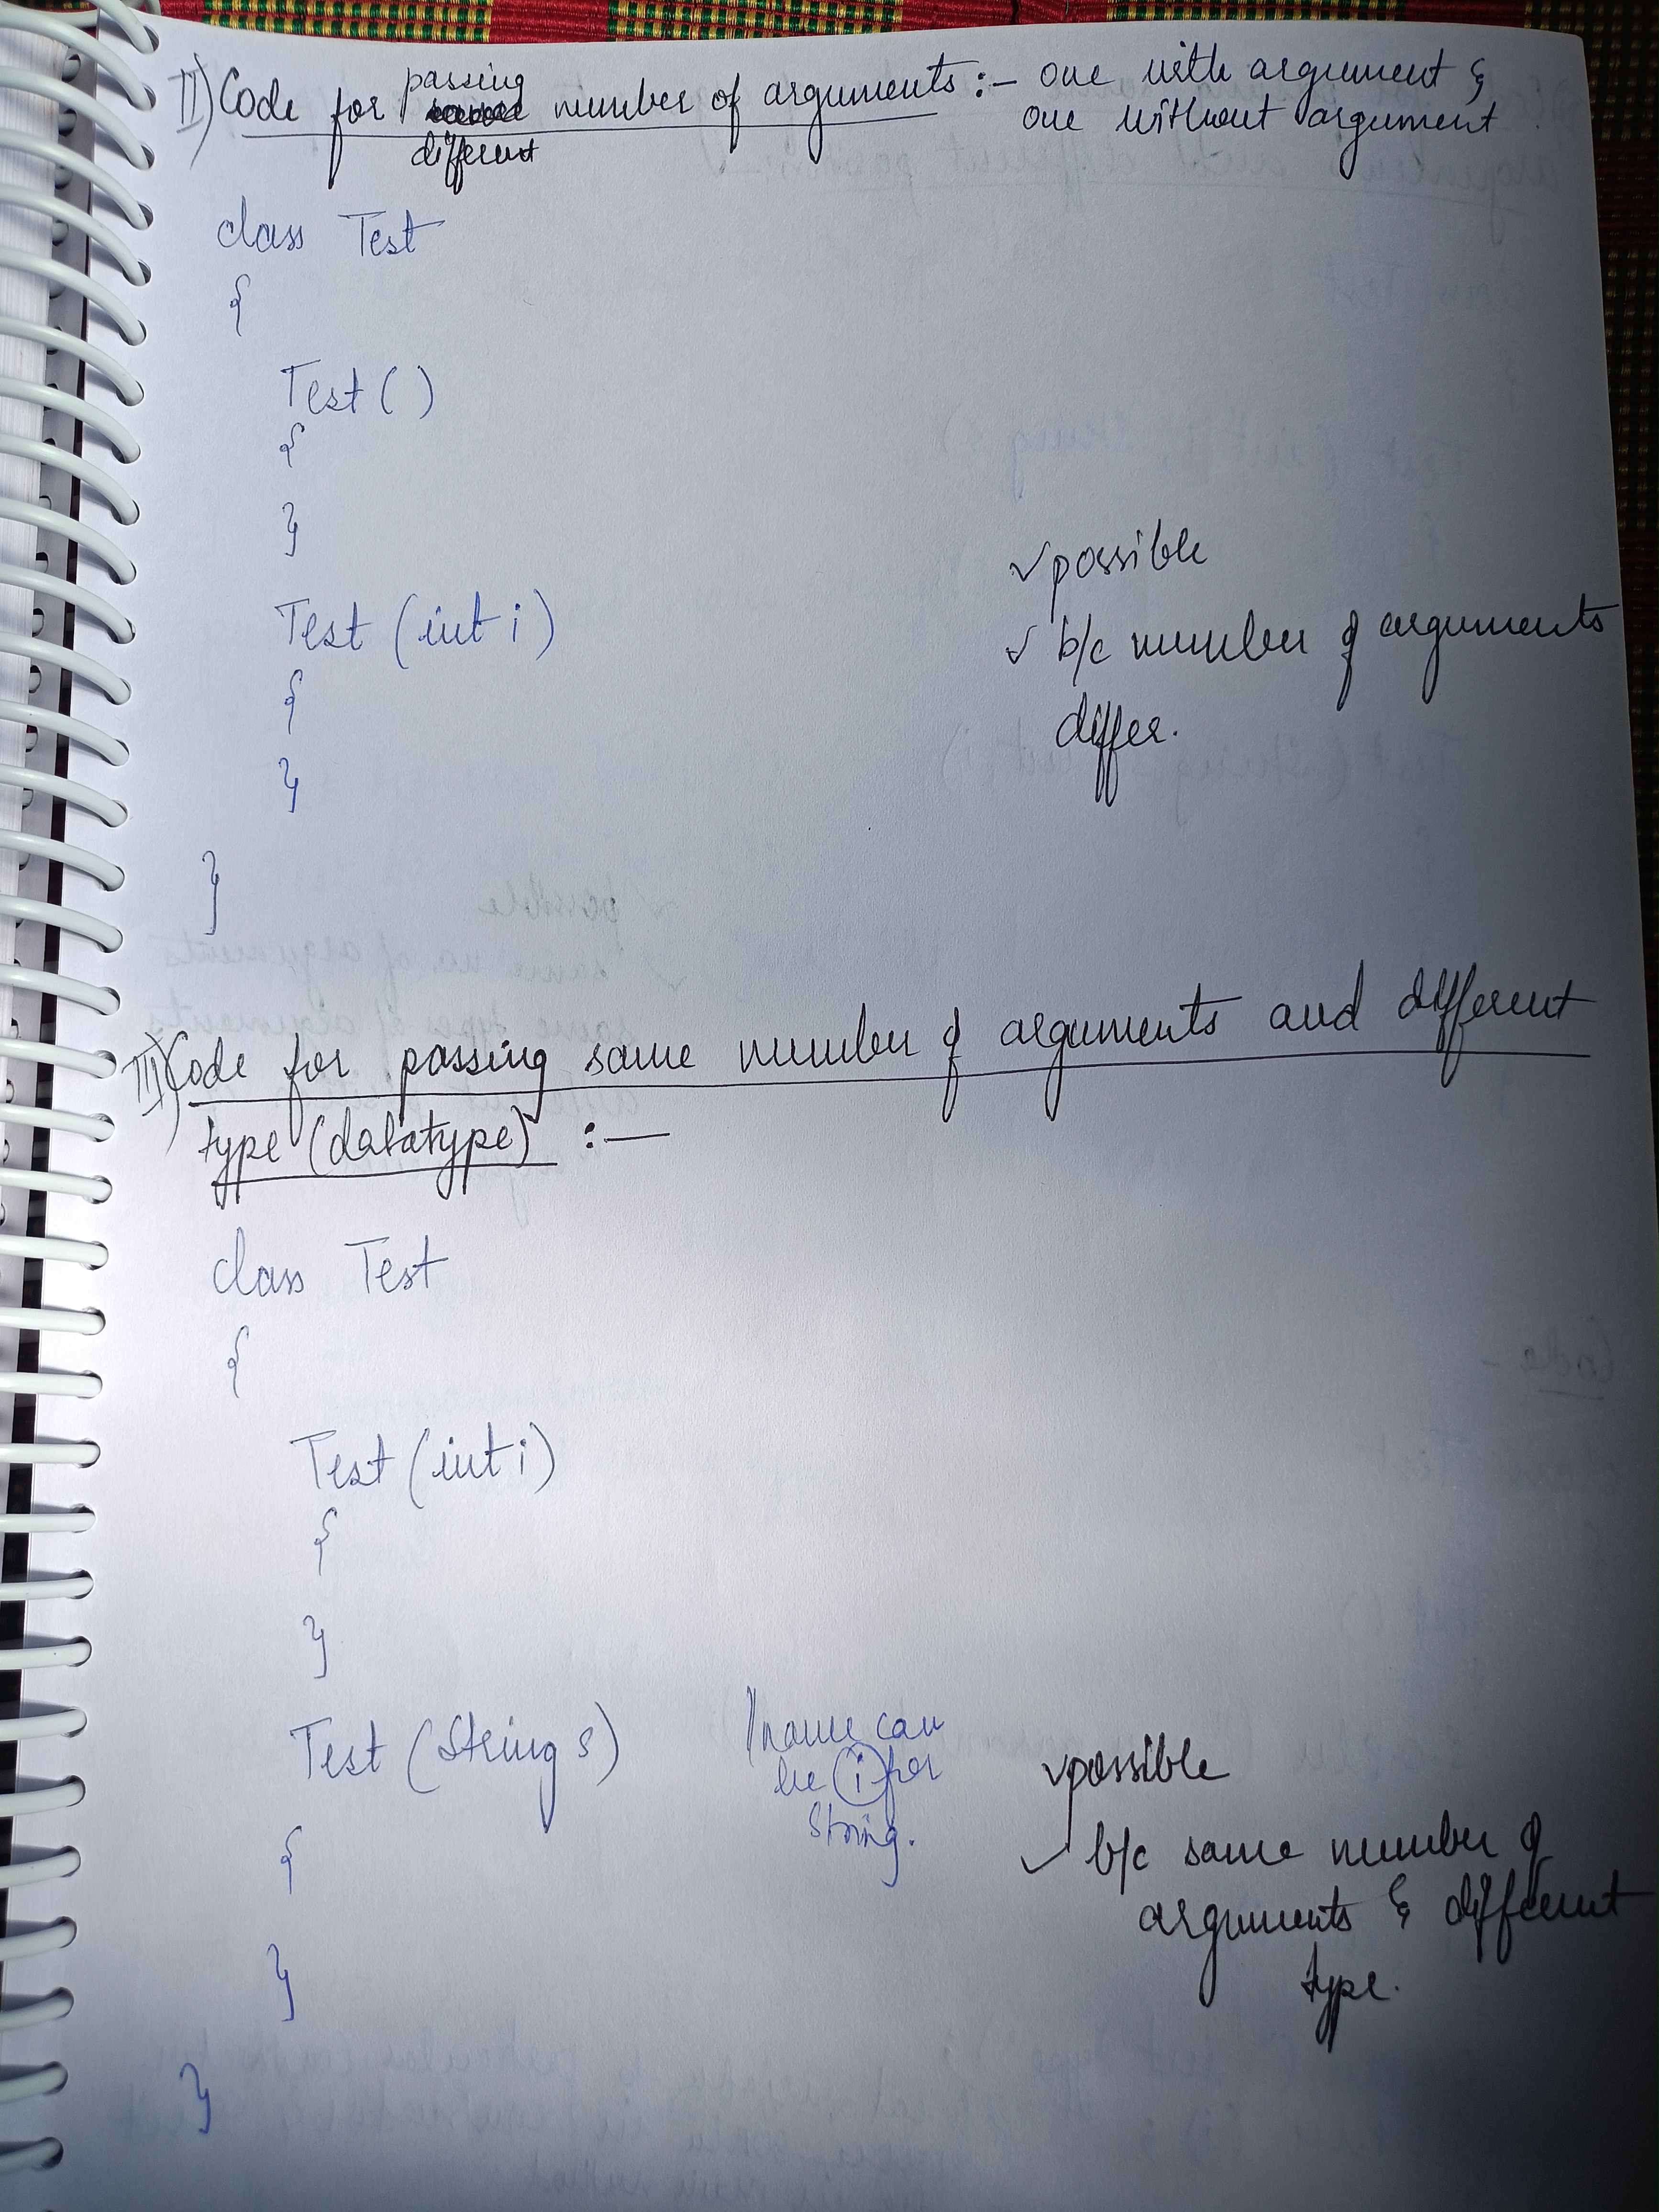 II) Code for passing different number of arguments :- one with argument &
one without argument.
class Test
{
Test ( )
{
}
✓ possible
Test (int i)
✓ b/c number of arguments
differ.
{
}
}
III) Code for passing same number of arguments and different
type (datatype) :-
class Test
{
Test (int i)
{
}
Test (String s)
name can
be i for
String.
✓ possible
✓ b/c same number of
arguments & different
type.
{
}
}